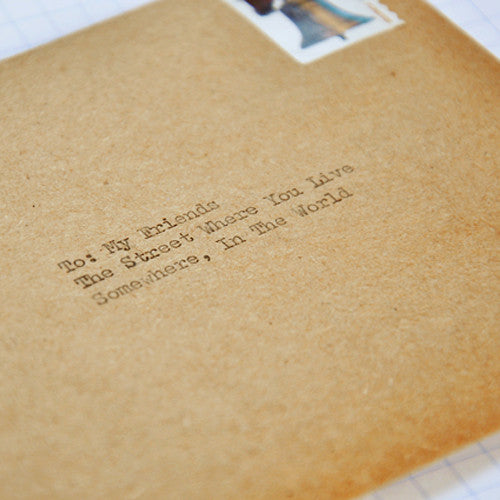 To: My Friends
The Street Where You Live
Somewhere, In The World